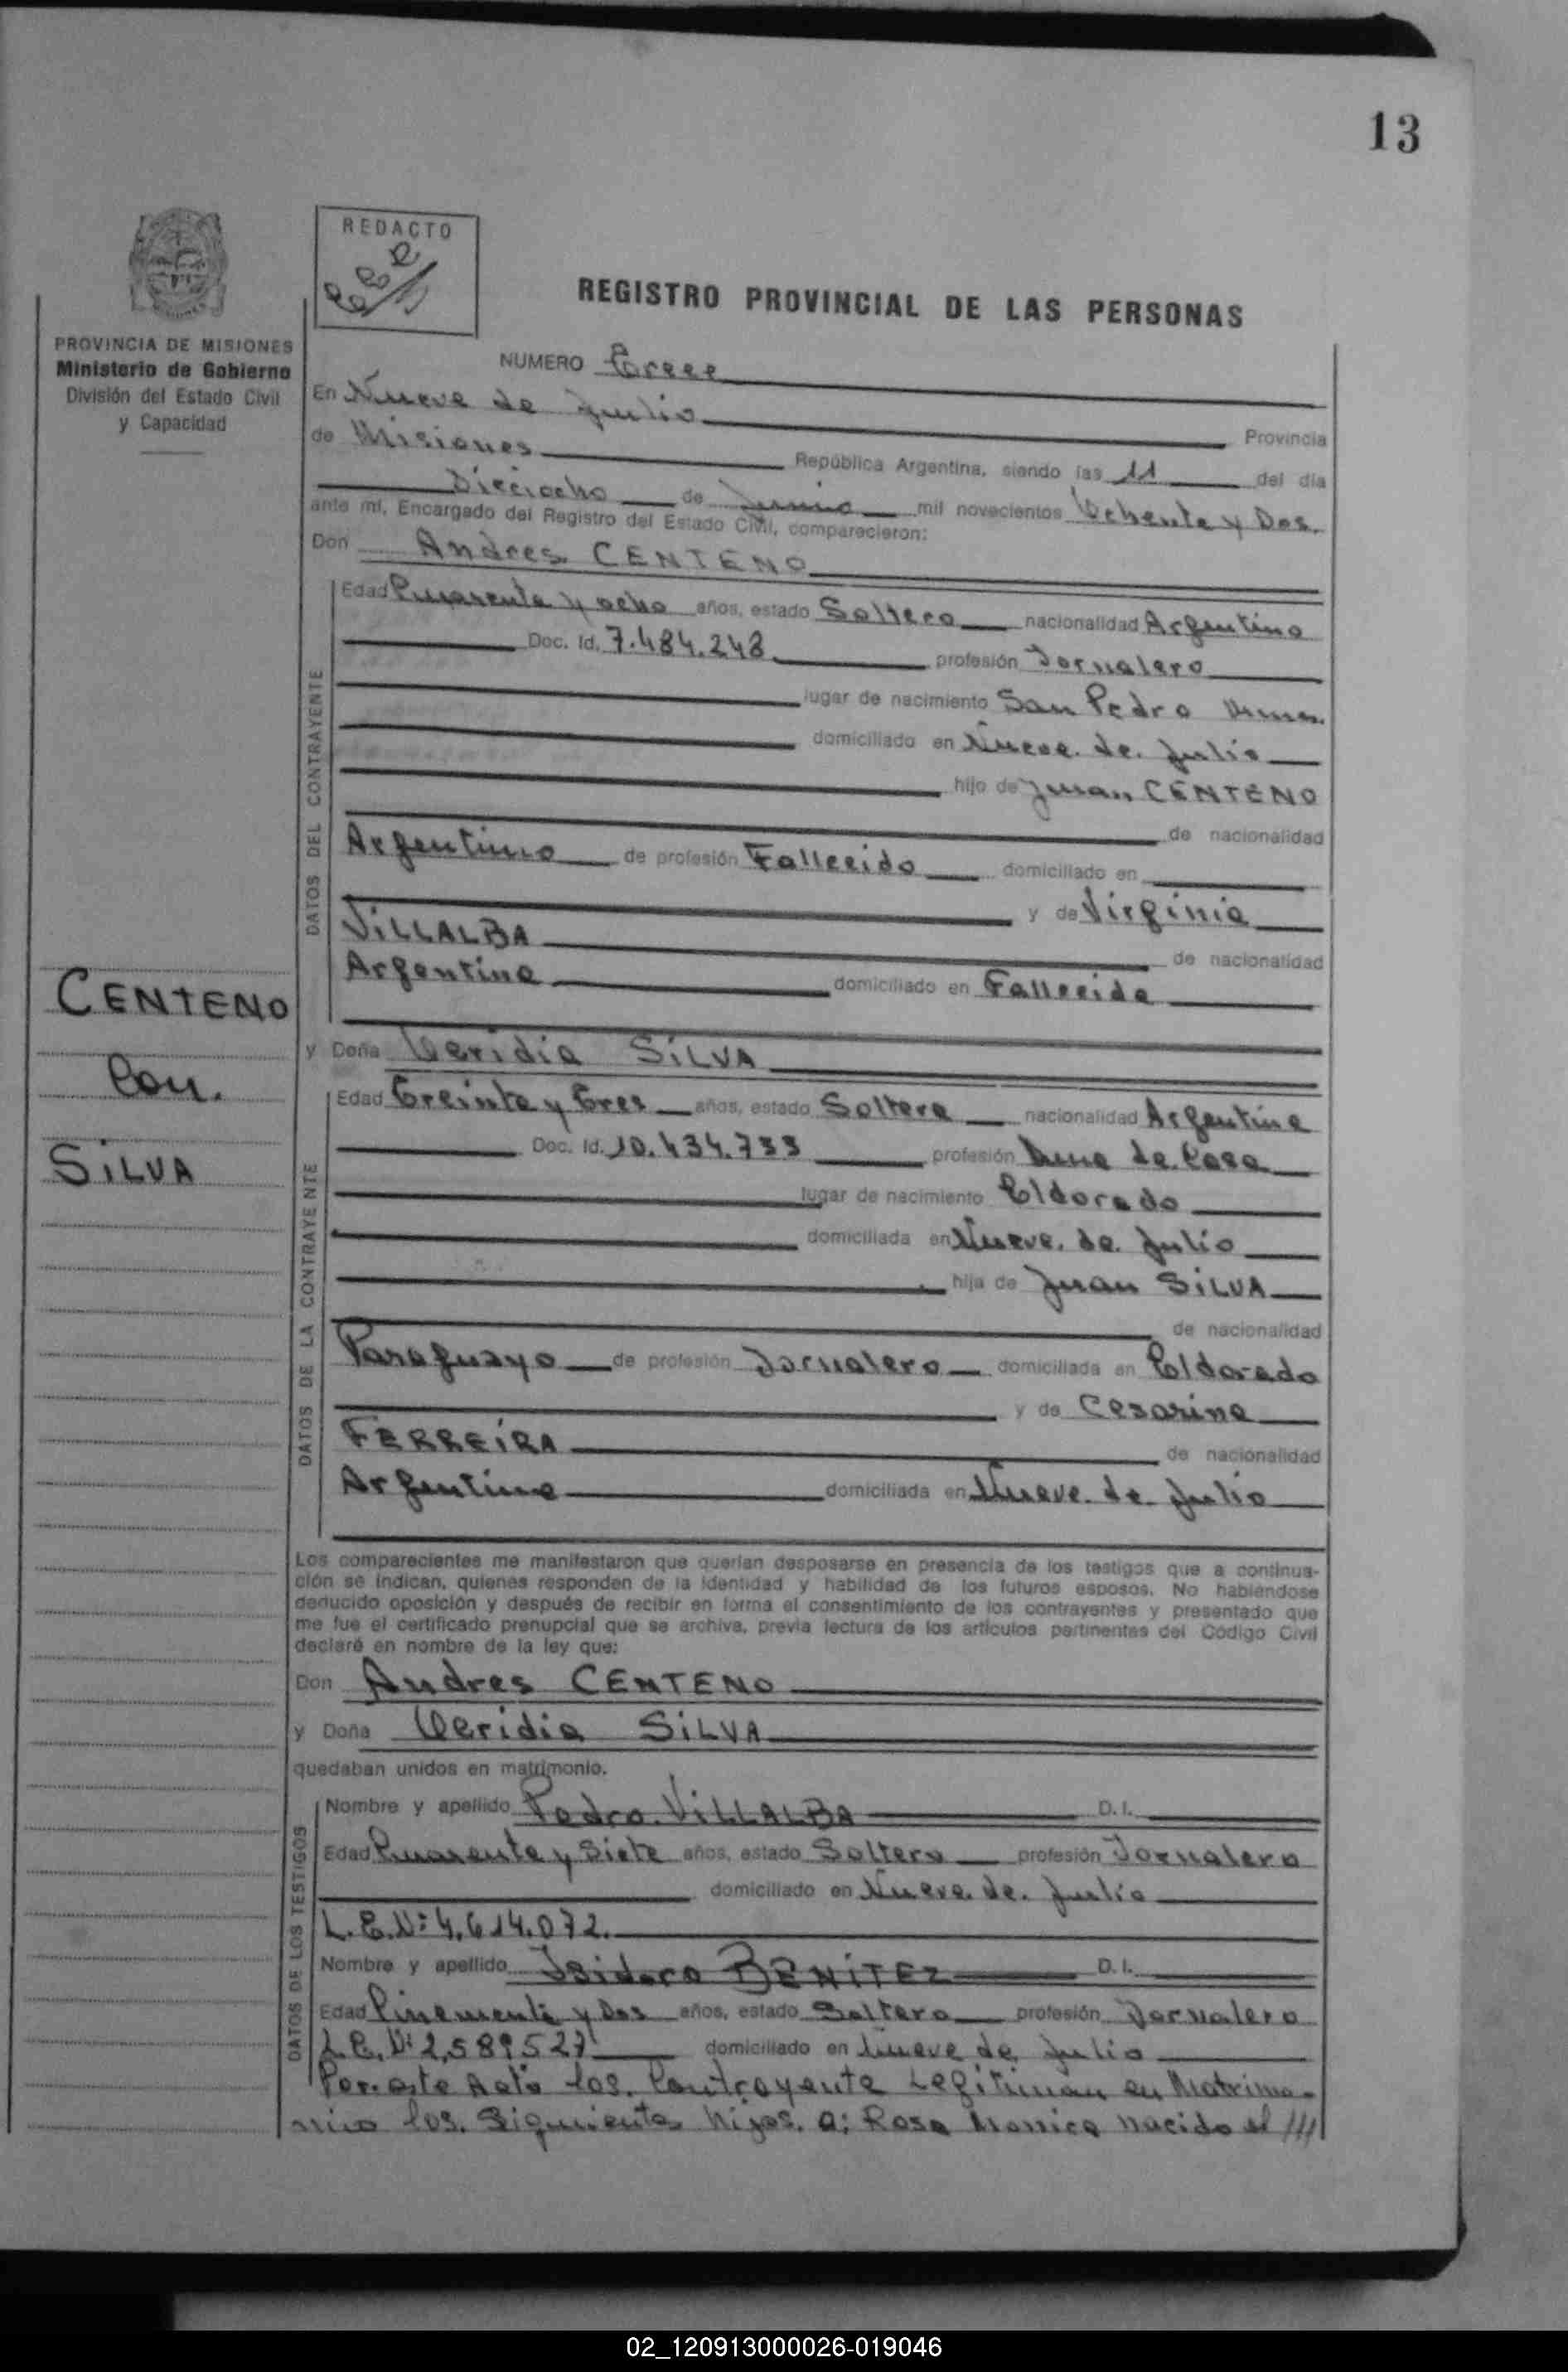 13
REDACTO
REGISTRO PROVINCIAL DE LAS PERSONAS
PROVINCIA DE MISIONES
Ministerio de Gobierno
División del Estado Civil
y Capacidad
NUMERO Trece
En Nueve de Julio Provincia
de Misiones República Argentina, siendo las 11 del día
Dieciocho de Junio mil novecientos Ochenta y Dos.
ante mí, Encargado del Registro del Estado Civil, comparecieron:
Don Andres CENTENO
DATOS DEL CONTRAYENTE
Edad Cuarenta y ocho años, estado Soltero nacionalidad Argentino
Doc. Id. 7.484.248 profesión Jornalero
lugar de nacimiento San Pedro
domiciliado en Nueve de Julio
hijo de Juan CENTENO
de nacionalidad
Argentino de profesión Fallecido domiciliado en
y de Virginia
VILLALBA de nacionalidad
Argentina domiciliado en Fallecida
CENTENO
Con.
SILVA
y Doña Veridia SILVA
DATOS DE LA CONTRAYENTE
Edad Treinta y Tres años, estado Soltera nacionalidad Argentina
Doc. Id. 10.434.733 profesión Ama de Casa
lugar de nacimiento Eldorado
domiciliada en Nueve de Julio
hija de Juan SILVA
de nacionalidad
Paraguayo de profesión Jornalero domiciliada en Eldorado
y de Cesarina
FERREIRA de nacionalidad
Argentina domiciliada en Nueve de Julio
Los comparecientes me manifestaron que querían desposarse en presencia de los testigos que a continua-
ción se indican, quienes responden de la identidad y habilidad de los futuros esposos. No habiéndose
deducido oposición y después de recibir en forma el consentimiento de los contrayentes y presentado que
me fue el certificado prenupcial que se archiva, previa lectura de los artículos pertinentes del Código Civil
declaré en nombre de la ley que:
Don Andres CENTENO
y Doña Veridia SILVA
quedaban unidos en matrimonio.
DATOS DE LOS TESTIGOS
Nombre y apellido Pedro VILLALBA D.I.
Edad Cuarenta y Siete años, estado Soltero profesión Jornalero
domiciliado en Nueve de Julio
L.E.Nº 4.614.072.
Nombre y apellido Isidoro BENITEZ D.I.
Edad Cincuenta y Dos años, estado Soltero profesión Jornalero
L.E.Nº 2,589527 domiciliado en Nueve de Julio
Por este Acto los. Contrayente Legitiman en Matrimo-
nio los. Siguiente hijos. a; Rosa Monica nacido el ///
02_120913000026-019046